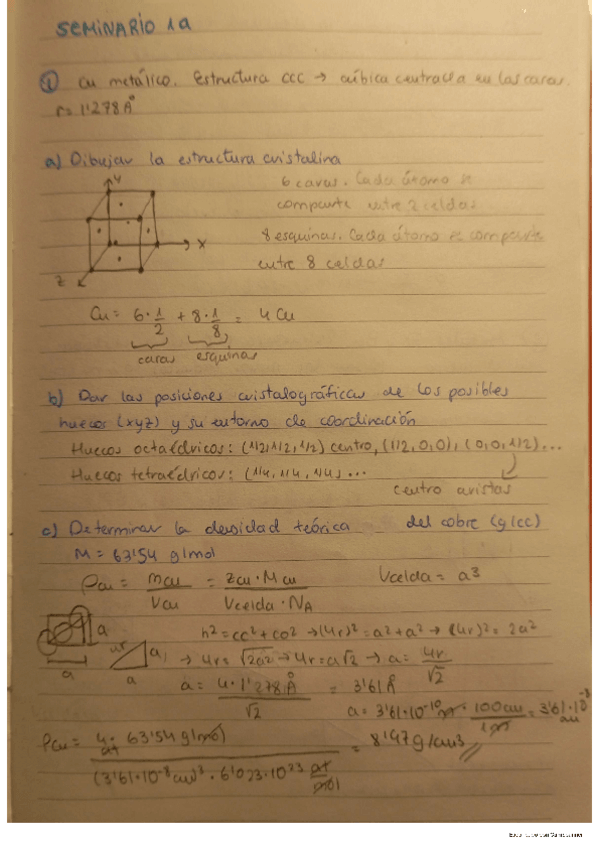 SEMINARIO 1a
① Cu metálico. Estructura ccc → cúbica centrada en las caras.
r = 1'278 Å
a) Dibujar la estructura cristalina
y
6 caras. Cada átomo se
comparte entre 2 celdas
8 esquinas. Cada átomo se comparte
entre 8 celdas
x
z
Cu = 6 · 1/2 + 8 · 1/8 = 4 Cu
caras esquinas
b) Dar las posiciones cristalográficas de los posibles
huecos (xyz) y su entorno de coordinación
Huecos octaédricos: (1/2, 1/2, 1/2) centro, (1/2, 0, 0), (0, 0, 1/2) ...
Huecos tetraédricos: (1/4, 1/4, 1/4) ...
centro aristas
c) Determinar la densidad teórica del cobre (g/cc)
M = 63'54 g/mol
ρcu = mcu / Vcu = zcu · Mcu / Vcelda · NA Vcelda = a³
a
a
4r
a
a
h² = cc² + co² → (4r)² = a² + a² → (4r)² = 2a²
→ 4r = √2a² → 4r = a√2 → a = 4r / √2
a = 4 · 1'278 Å / √2 = 3'61 Å
a = 3'61 · 10⁻¹⁰ m · 100 cm / 1 m = 3'61 · 10⁻⁸ cm
ρcu = 4 at · 63'54 g/mol / (3'61 · 10⁻⁸ cm)³ · 6'023 · 10²³ at/mol = 8'97 g/cm³